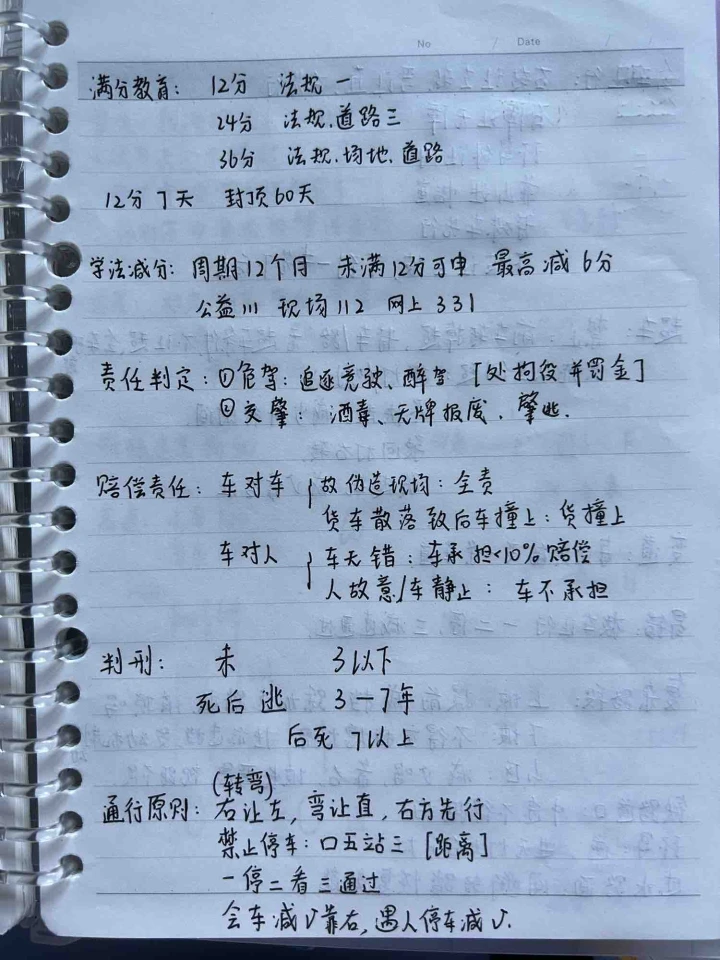 No / Date / /
满分教育: 12分 法规一
24分 法规、道路三
36分 法规、场地、道路
12分 7天 封顶60天
学法减分: 周期12个月一未满12分可申 最高减6分
公益111 现场112 网上331
责任判定: ①危驾: 追逐竞驶、醉驾 [处拘役并罚金]
②交肇: 酒毒、无牌报废、肇逃.
赔偿责任: 车对车 { 故伪造现场: 全责
货车散落致后车撞上: 货撞上
车对人 { 车无错: 车承担<10%赔偿
人故意/车静止: 车不承担
判刑: 未 3以下
死后逃 3-7年
后死 7以上
(转弯)
通行原则: 右让左, 弯让直, 右方先行
禁止停车: 口五站三 [距离]
一停二看三通过
会车减V靠右, 遇人停车减V.